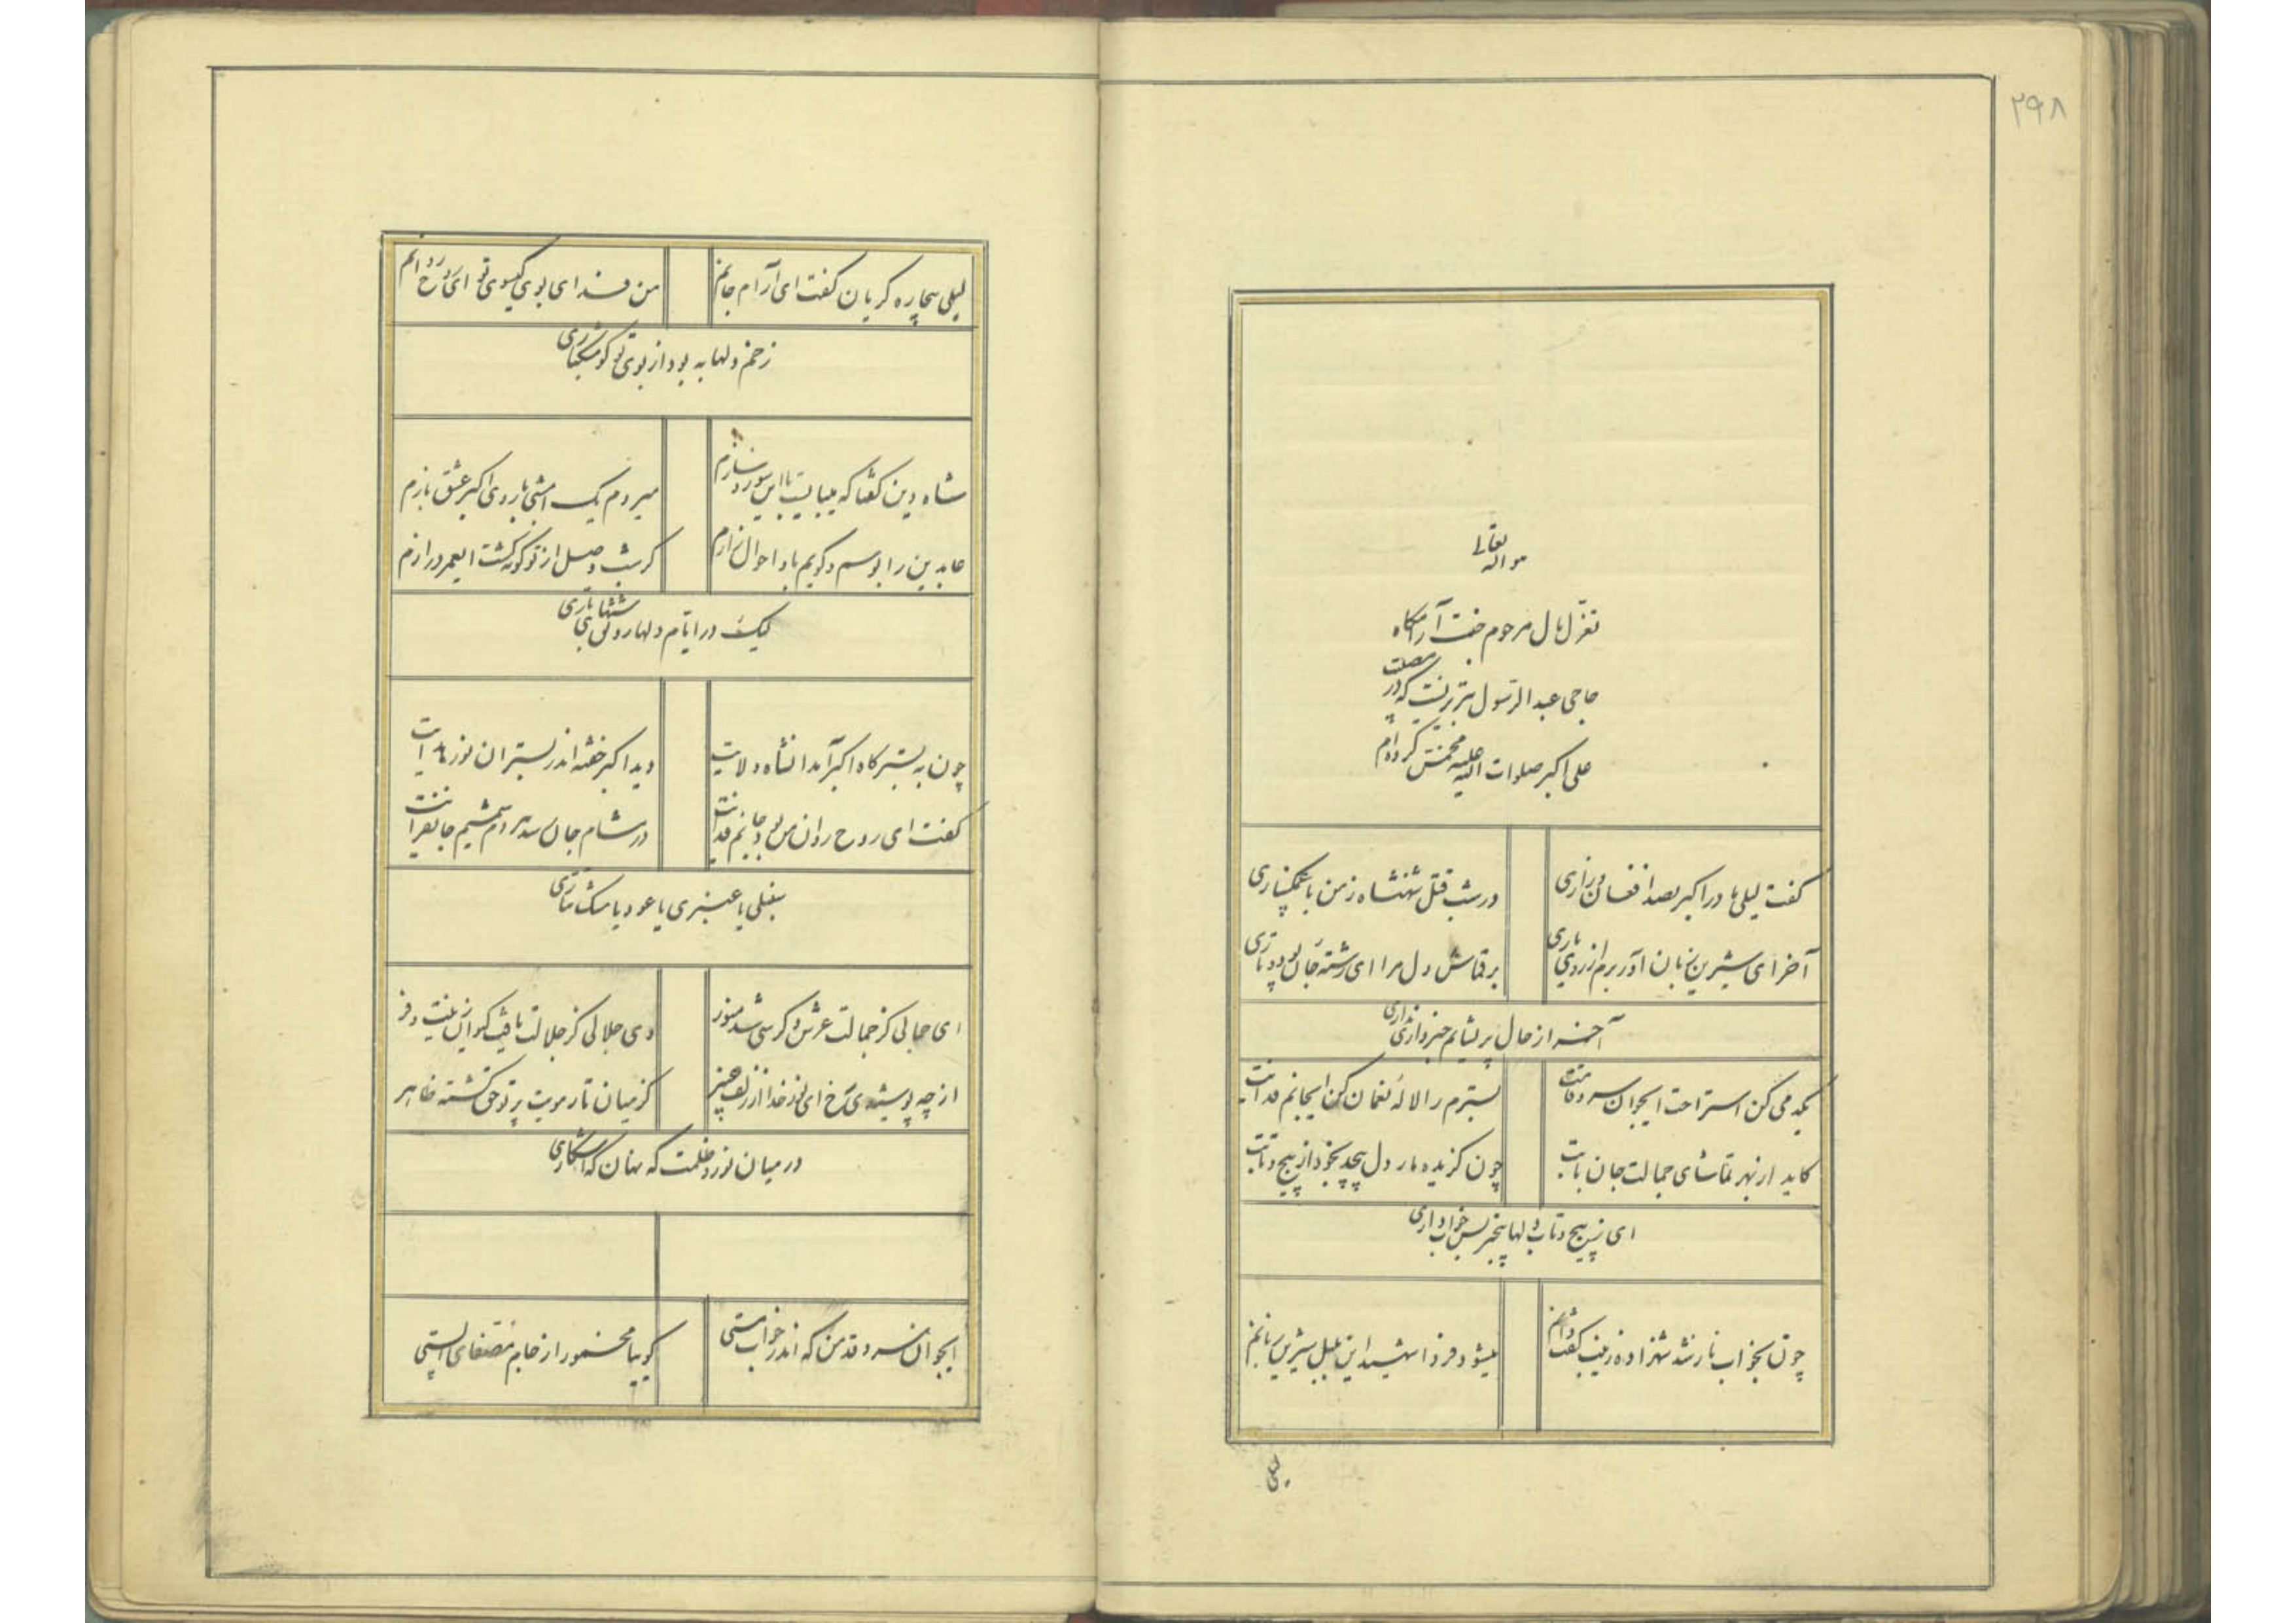 ۲۹۸
هو الله تعالی
تغزل لال مرحوم جنت آرامگاه
حاجی عبدالرسول تبریزیست که در مصیبت
علی اکبر صلوات الله علیه مخمس کرده‌ام
گفت لیلی مادر اکبر بصد افغان و زاری
در شب قتل شهنشاه زمن با غمگساری
آخر ای شیرین زبان آور برم از روی یاری
بر قماش دل مرا ای رشته جان پود و تاری
آخر از حال پریشانم خبر داری نداری
یکدمی کن استراحت ایجوان سرو قامت
بسترم را لاله نعمان کن ایجانم فدایت
کاید از بهر تماشای جمالت جان بابت
چون گزیده مار دل پیچد بخود از پیچ و تابت
ای ز پیچ و تاب دلها بیخبر بس خواب داری
چون بخواب ناز شد شهزاده زینب گفت دانم
میشود فردا شهید این بلبل شیرین زبانم
لیلی
لیلی بیچاره گریان گفت ای آرام جانم
من فدای بوی گیسوی تو ای روح روانم
زخم دلها به بود از بوی تو گو مشکباری
شاه دین گفتا که میبایست با این سوز سازم
میروم یک امشبی با روی اکبر عشق بازم
عابدین را بوسم و گویم باو احوال زارم
گر شب وصل از تو کوته گشت ایعمر درازم
لیک در ایام دلها روی شبهای تاری
چون به بستر گاه اکبر آمد انشاه ولایت
دید اکبر خفته اندر بستر ان نور هدایت
گفت ای روح روان من بود جانم فدایت
در مشام جان رسد هر دم شمیم جانفزایت
سنبلی یا عنبری یا عود یا مشک تتاری
ای جمالی کز جمالت عرش و کرسی شد منور
وی جلالی کز جلالت یافت کیوان زینت و فر
از چه پوشیدی رخ ای نور خدا از زلف عنبر
کز میان تار مویت پرتو حق گشته ظاهر
در میان نور و ظلمت گه نهان گه آشکاری
ایجوان سرو قد من که اندر خواب مستی
گوییا مخمور از جام مصفای الستی